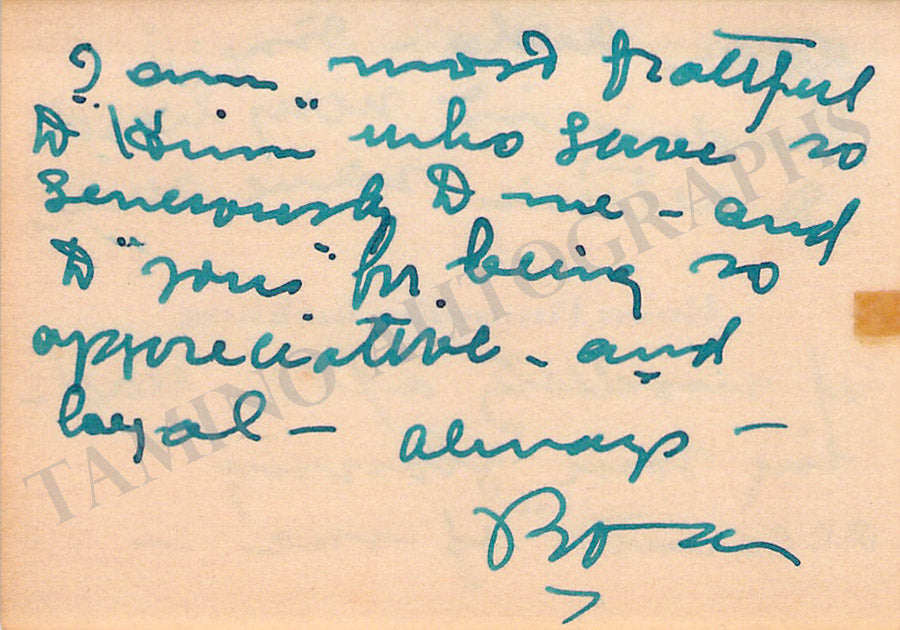 I am most grateful
to "Him" who gave so
generously to me – and
to "you" for being so
appreciative – and
loyal – always –
Rosa
TAMINO AUTOGRAPHS